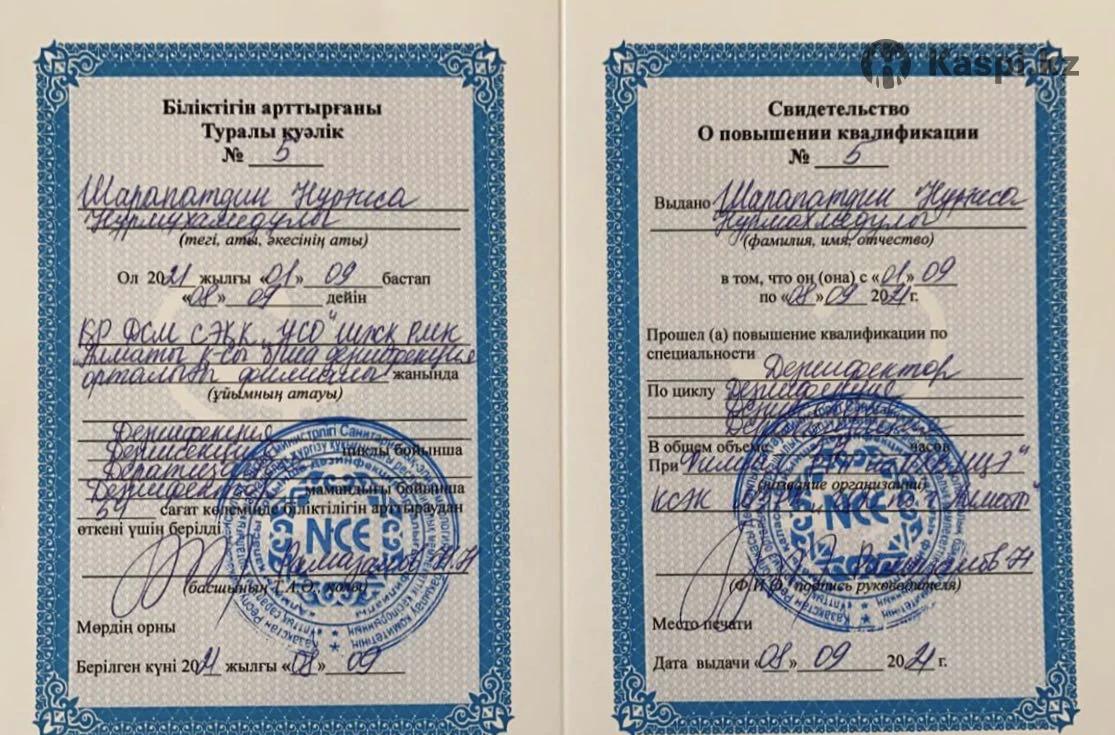 Kaspi.kz
Біліктігін арттырғаны
Туралы куәлік
№ 5
Шарапатдин Нуртиса
Нурмухамедулы
(тегі, аты, әкесінің аты)
Ол 2021 жылғы «01» 09 бастап
«08» 09 дейін
ҚР ДСМ СЭҚК "ҰСО" ШЖҚ РМК
Алматы қ-сы б-ша дезинфекция
орталығы филиалы жанында
(ұйымның атауы)
Дезинфекция
Дезинсекция циклы бойынша
Дератизация
Дезинфектор мамандығы бойынша
54 сағат көлемінде біліктілігін арттыраудан
өткені үшін берілді
Рамазанов Н.Н
(басшының Т.А.Ә., қолы)
Мөрдің орны
Берілген күні 2021 жылғы «08» 09
Свидетельство
О повышении квалификации
№ 5
Выдано Шарапатдин Нуртиса
Нурмахмедулы
(фамилия, имя, отчество)
в том, что он (она) с «01» 09
по «08» 09 2021г.
Прошел (а) повышение квалификации по
специальности
Дезинфектор
По циклу Дезинфекция
В общем объеме часов
При
(название организации)
Рамазанов Н
(Ф.И.О. подпись руководителя)
Место печати
Дата выдачи «08» 09 2021 г.
NCE
NCE